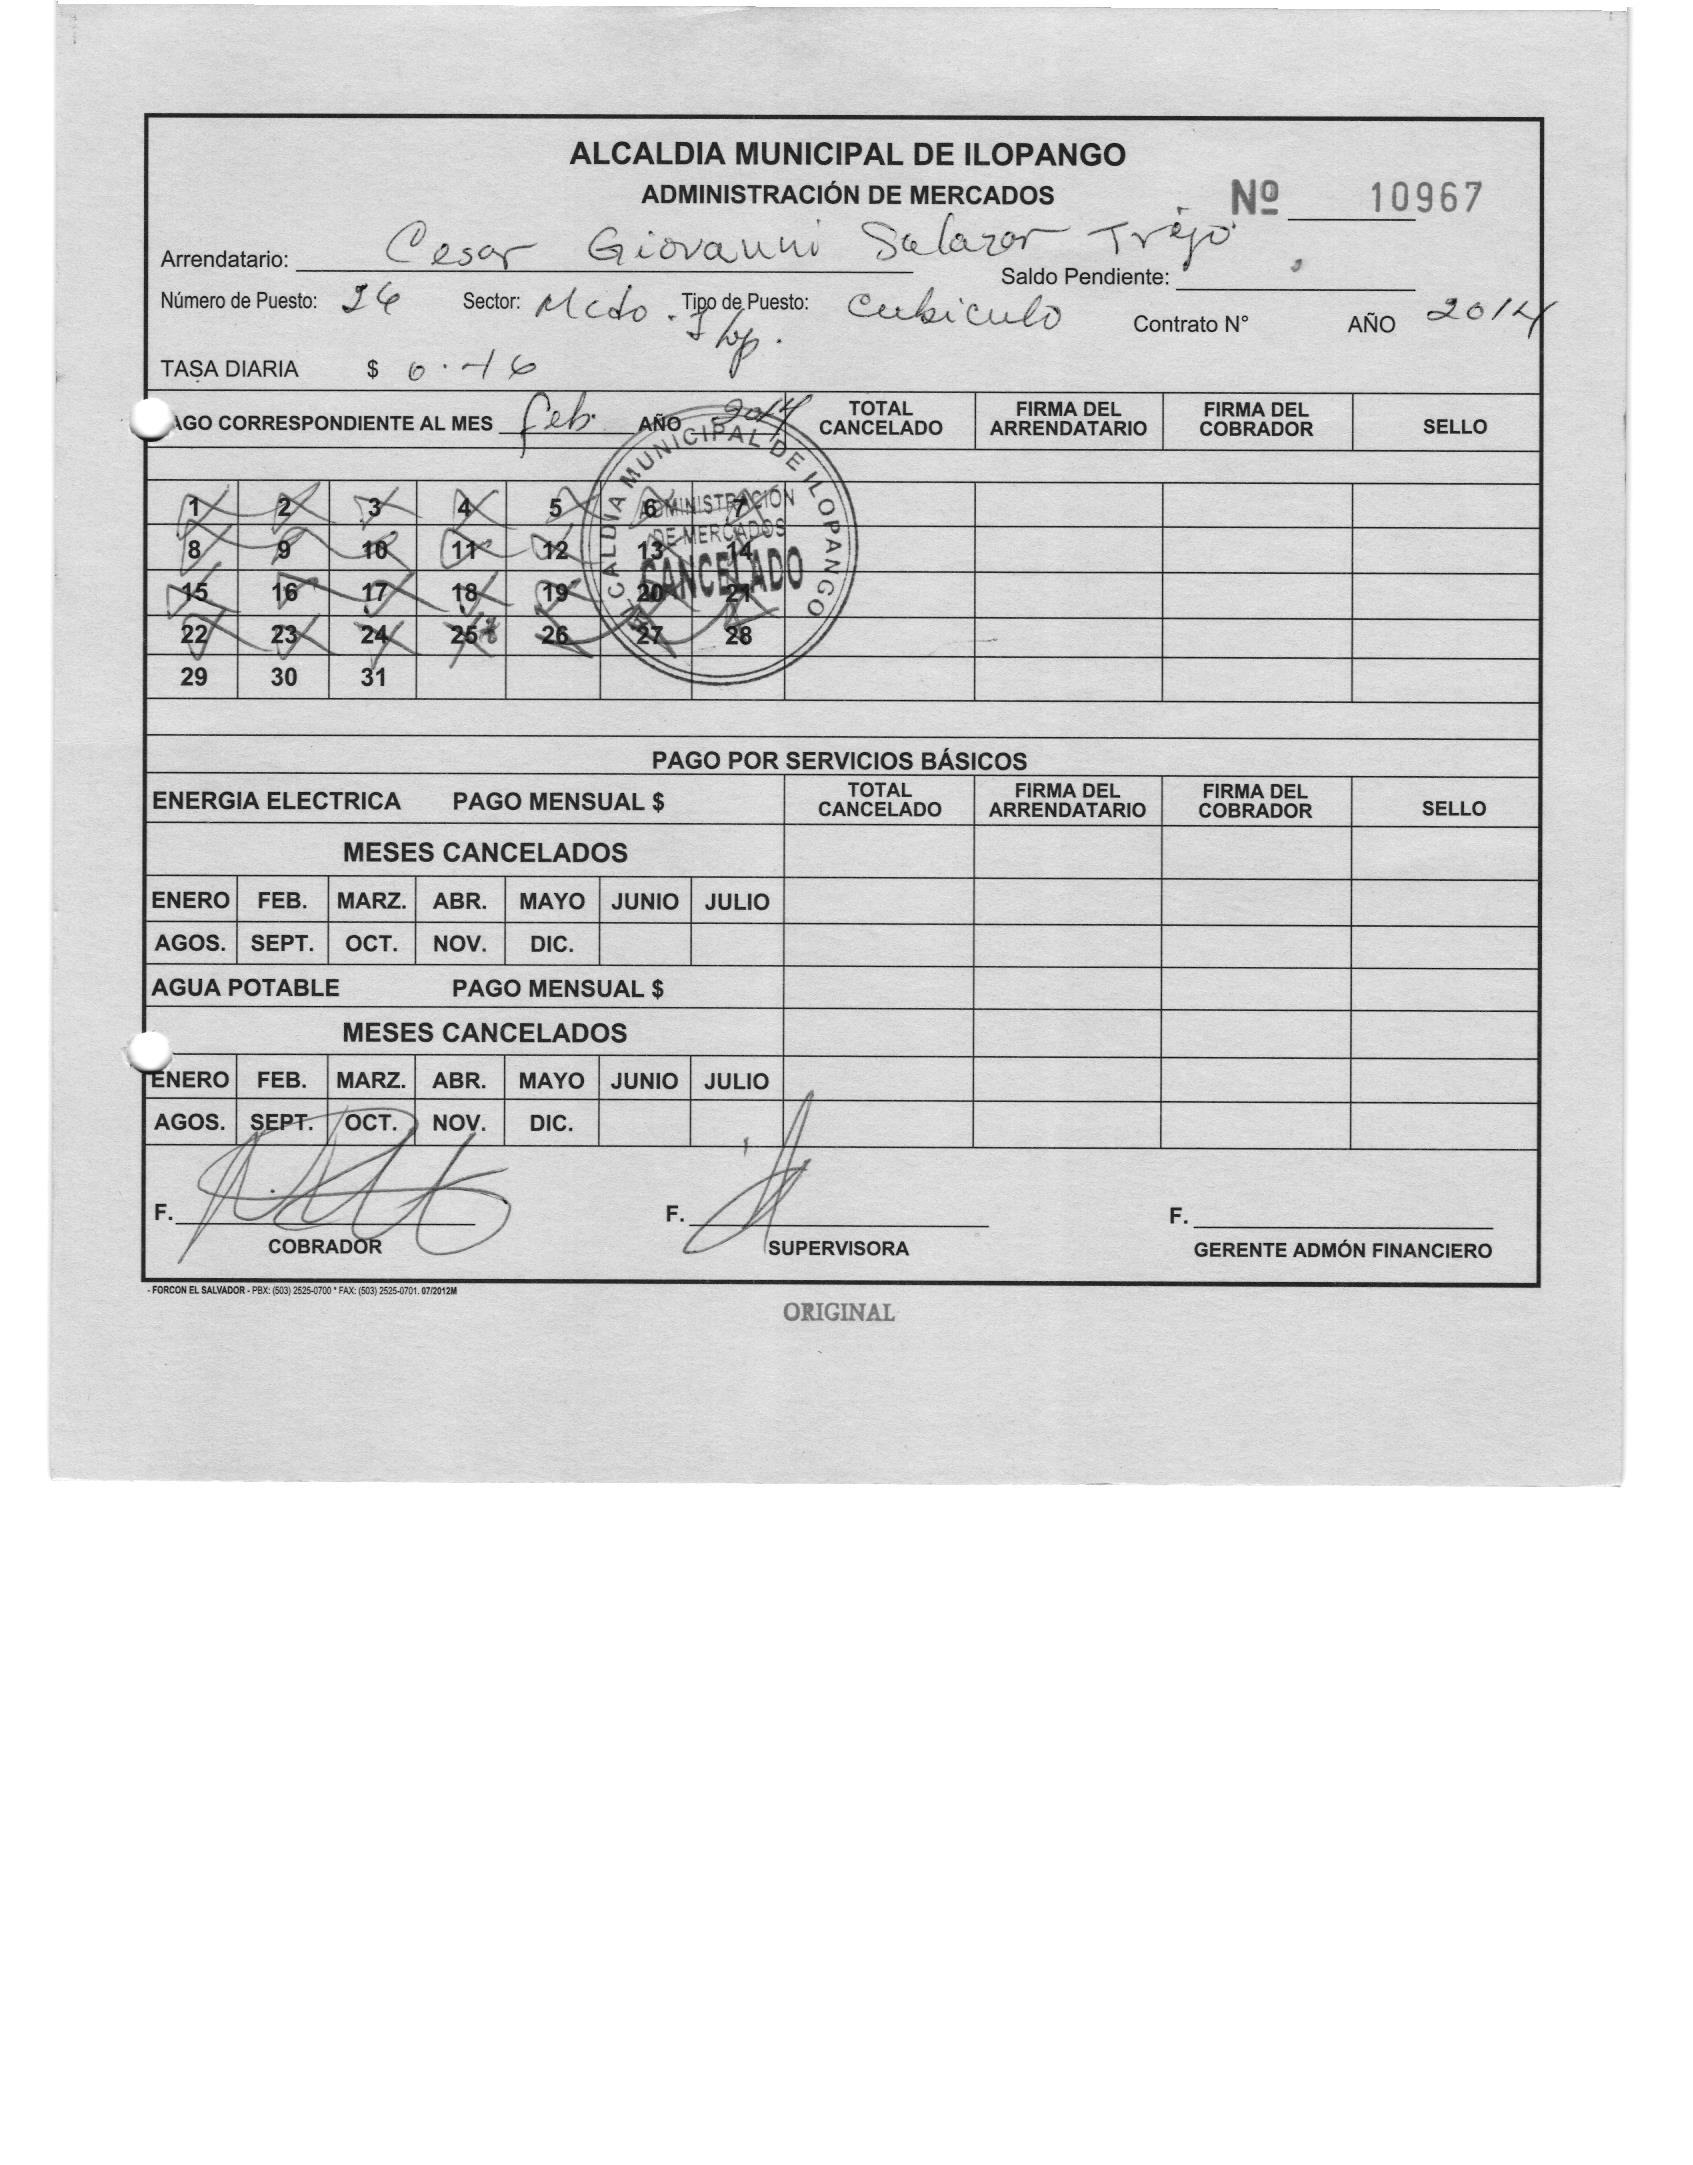 ALCALDIA MUNICIPAL DE ILOPANGO
ADMINISTRACIÓN DE MERCADOS
Nº 10967
Arrendatario: Cesar Giovanni Salazar Trejo
Saldo Pendiente:
Número de Puesto: 26 Sector: Mcdo. Ilop. Tipo de Puesto: Cubiculo Contrato N° AÑO 2014
TASA DIARIA $ 0.46
PAGO CORRESPONDIENTE AL MES feb. AÑO 2014 TOTAL CANCELADO FIRMA DEL ARRENDATARIO FIRMA DEL COBRADOR SELLO
1 2 3 4 5 6 7
8 9 10 11 12 13 14
15 16 17 18 19 20 21
22 23 24 25 26 27 28
29 30 31
ALCALDIA MUNICIPAL DE ILOPANGO
ADMINISTRACION
DE MERCADOS
CANCELADO
PAGO POR SERVICIOS BÁSICOS
ENERGIA ELECTRICA PAGO MENSUAL $ TOTAL CANCELADO FIRMA DEL ARRENDATARIO FIRMA DEL COBRADOR SELLO
MESES CANCELADOS
ENERO FEB. MARZ. ABR. MAYO JUNIO JULIO
AGOS. SEPT. OCT. NOV. DIC.
AGUA POTABLE PAGO MENSUAL $
MESES CANCELADOS
ENERO FEB. MARZ. ABR. MAYO JUNIO JULIO
AGOS. SEPT. OCT. NOV. DIC.
F. F. F.
COBRADOR SUPERVISORA GERENTE ADMÓN FINANCIERO
- FORCON EL SALVADOR - PBX: (503) 2525-0700 * FAX: (503) 2525-0701. 07/2012M
ORIGINAL